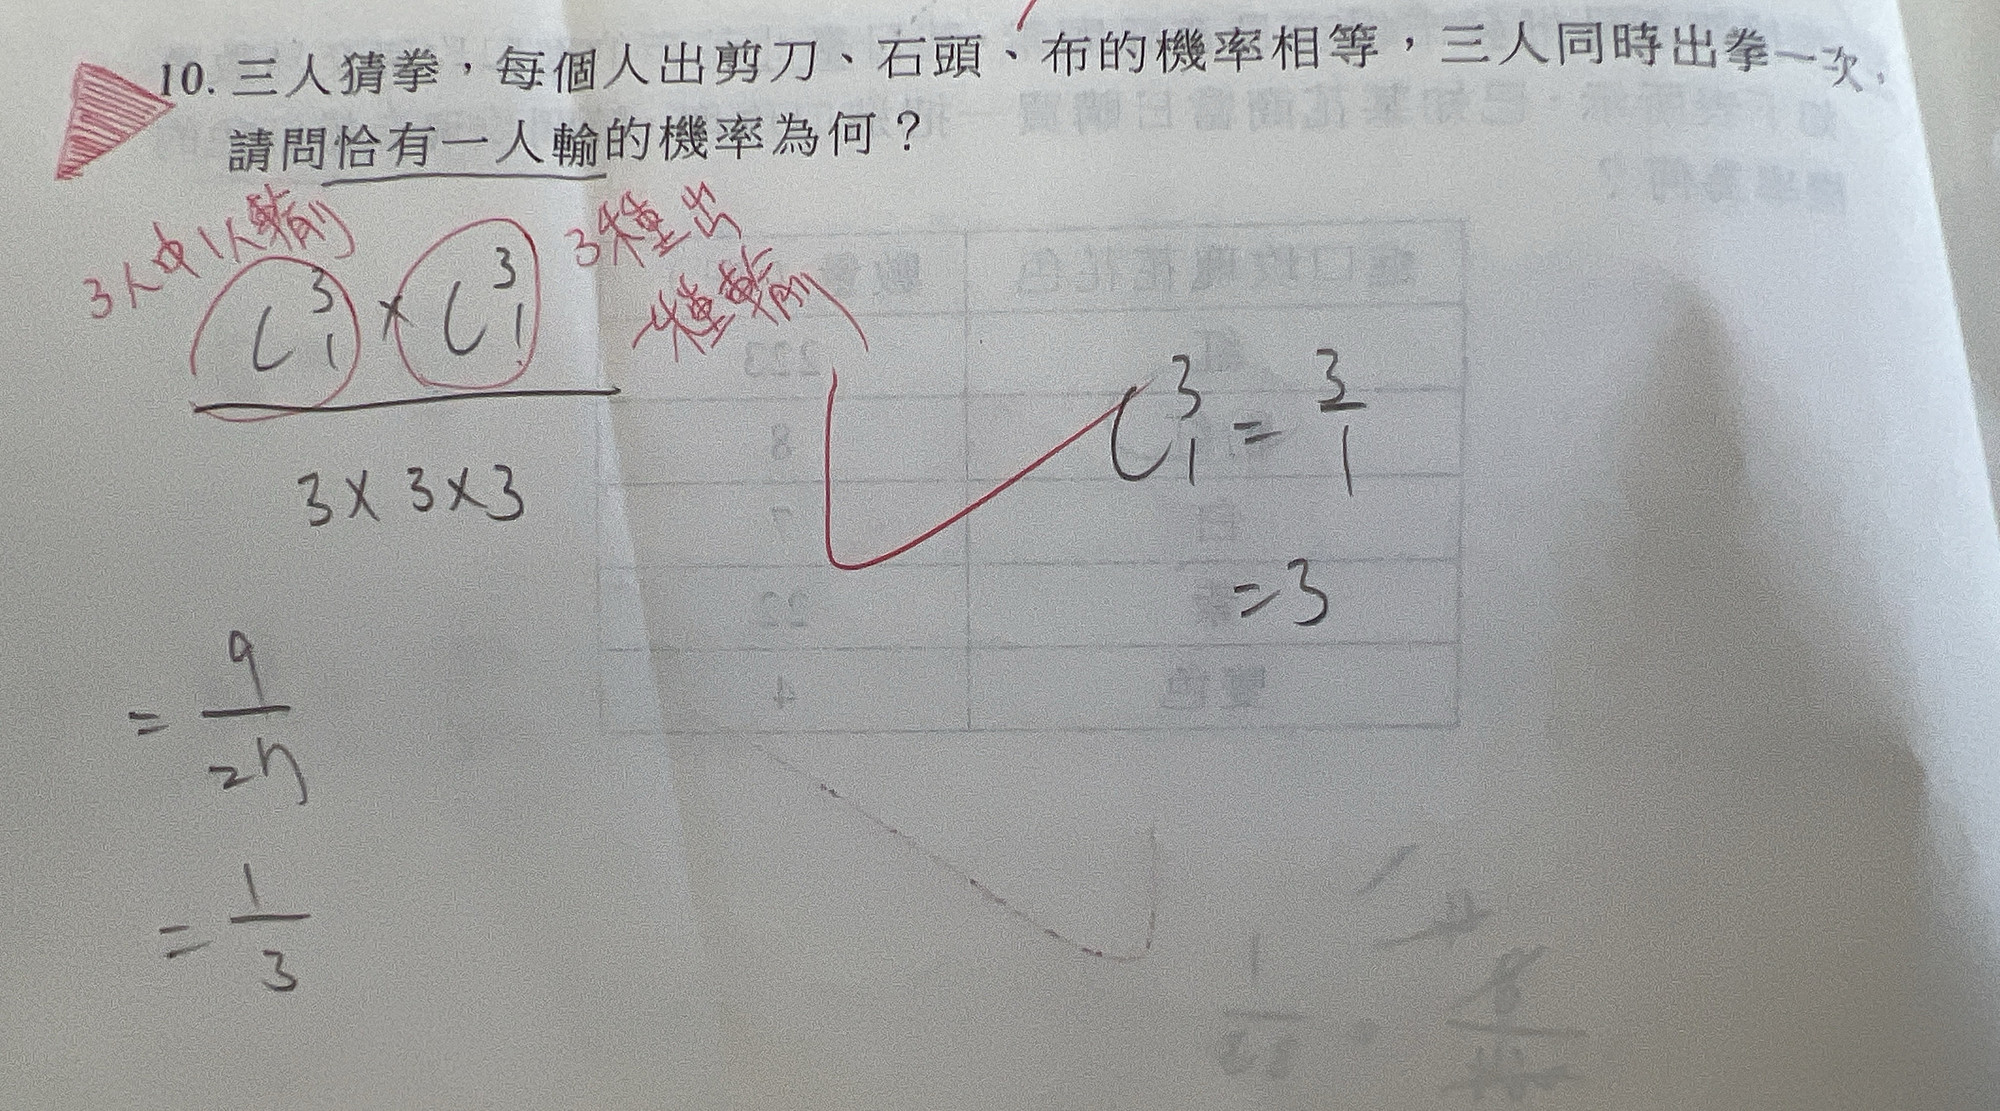 10. 三人猜拳，每個人出剪刀、石頭、布的機率相等，三人同時出拳一次，
請問恰有一人輸的機率為何？
3人中1人輸 3種出
一種輸
C³₁ × C³₁
3×3×3
C³₁ = 3/1
=3
= 9/27
= 1/3